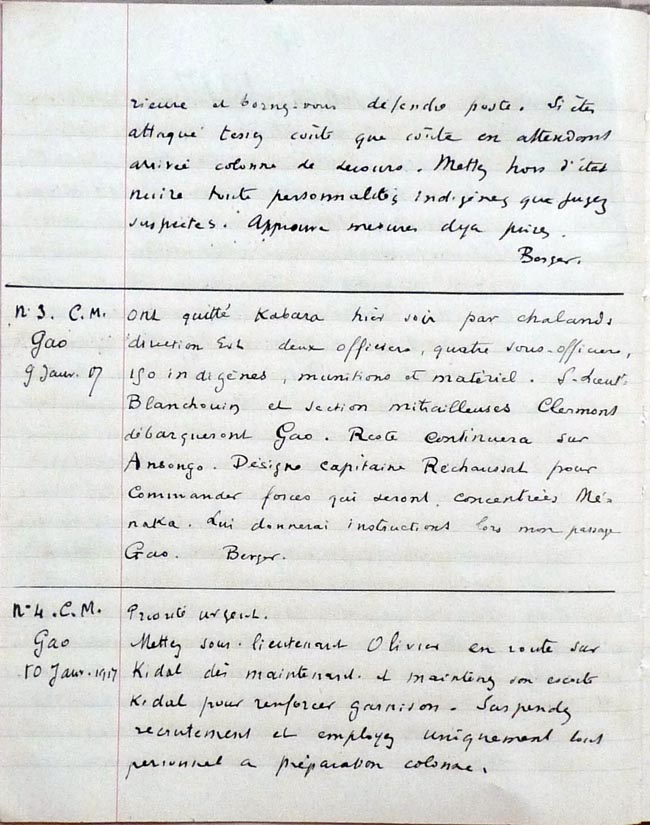 rieure et bornez-vous défendre poste. Si êtes
attaqué tenez coûte que coûte en attendant
arrivée colonne de secours. Mettez hors d'état
nuire toute personnalités indigènes que jugez
suspectes. Approuve mesures déjà prises.
Berger.
n° 3. C.M. Ont quitté Kabara hier soir par chalands
Gao direction Est deux officiers, quatre sous-officiers,
9 Janv. 17 150 indigènes, munitions et matériel. S-Lieut
Blanchouin et section mitrailleuses Clermont
débarqueront Gao. Reste continuera sur
Ansongo. Désigne capitaine Rechaussat pour
commander forces qui seront concentrées Mé-
naka. Lui donnerai instructions lors mon passage
Gao. Berger.
n° 4. C.M. Priorité urgent.
Gao Mettez sous-lieutenant Olivier en route sur
10 Janv. 1917 Kidal dès maintenant et maintenez son escorte
Kidal pour renforcer garnison. Suspendez
recrutement et employez uniquement tout
personnel a préparation colonne.